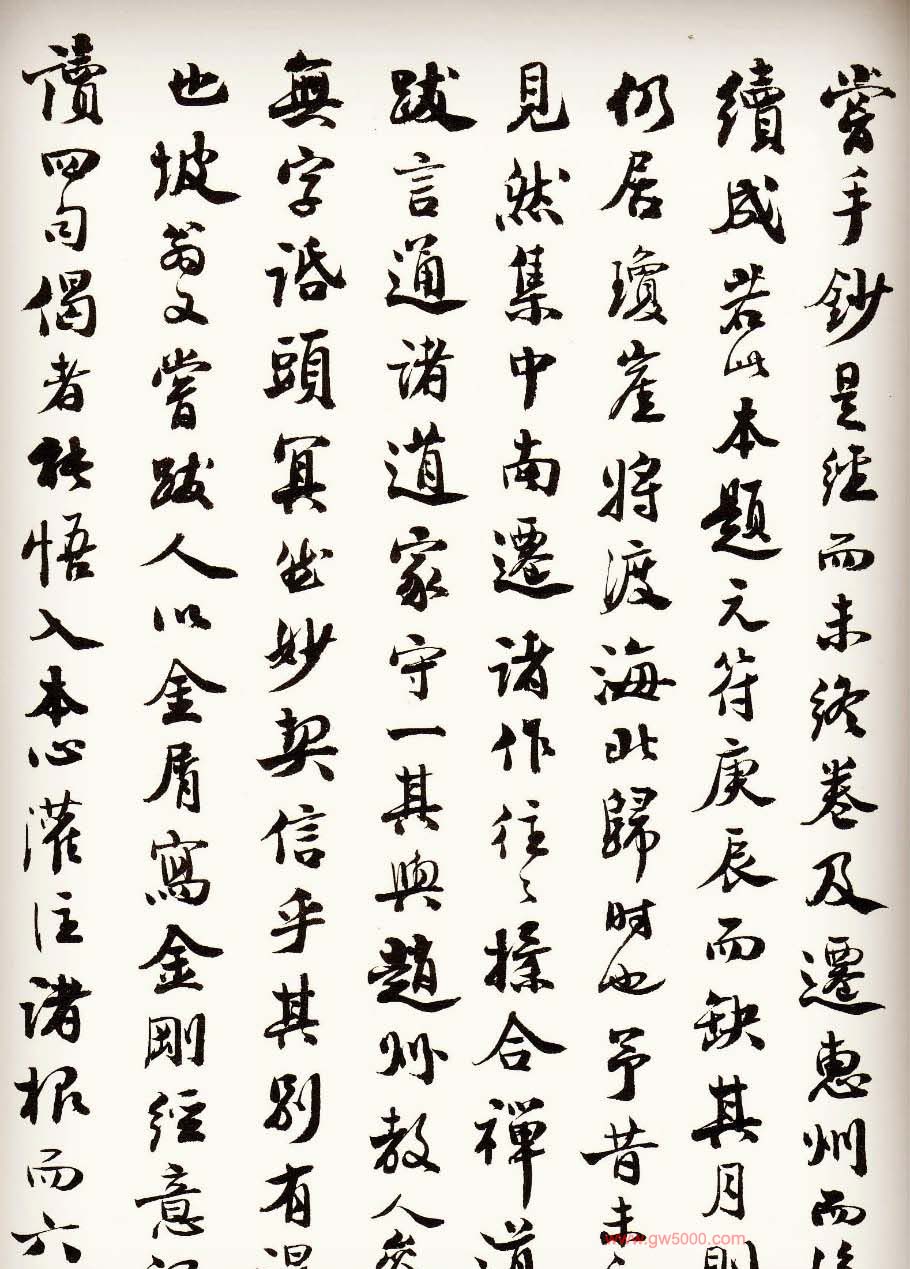 嘗手鈔是經而未終卷及遷惠州而
續成若此本題元符庚辰而缺其月則
仍居瓊崖將渡海北歸時也予昔未
見然集中南遷諸作往々操合禪道
跋言通諸道家守一其與趙州教人
無字話頭冥然妙契信乎其別有
也坡翁又嘗跋人以金屑寫金剛經意
讀四句偈者能悟入本心灌注諸根而六
www.gw5000.com